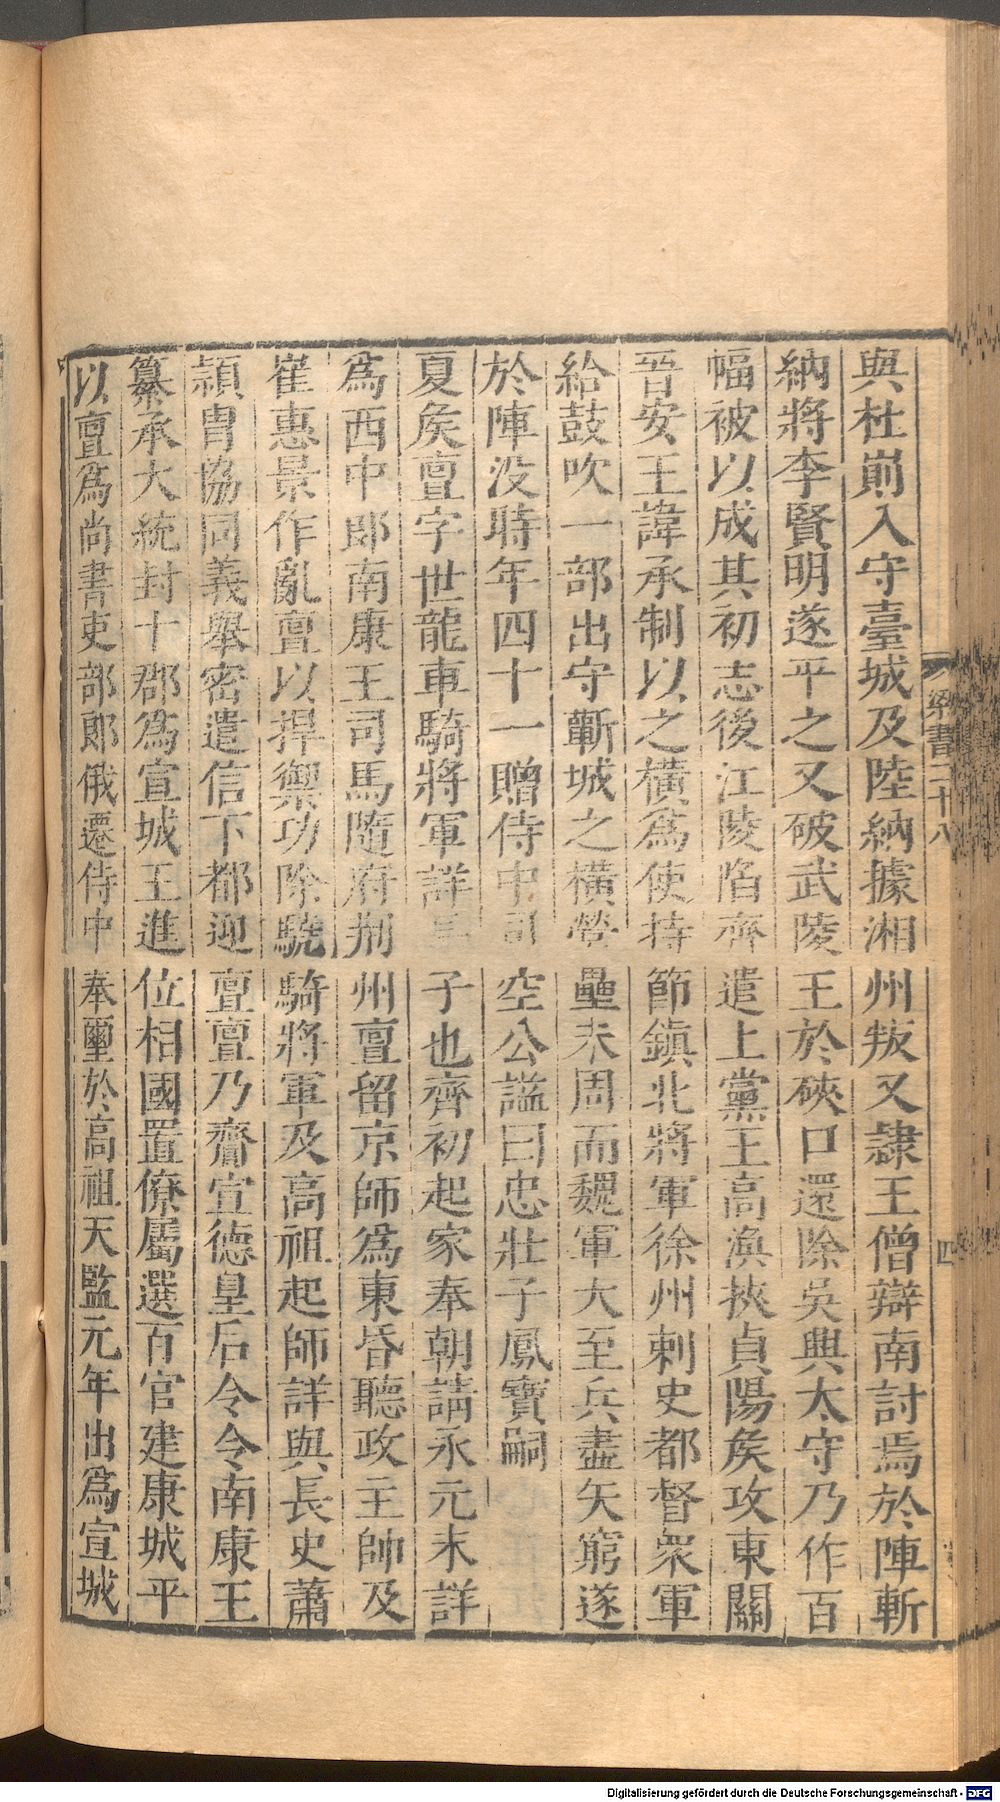 與杜崱入守臺城及陸納據湘州叛又隷王僧辯南討焉於陣斬
納將李賢明遂平之又破武陵王於硤口還除吳興太守乃作百
幅被以成其初志後江陵陷齊遣上黨王高渙挾貞陽矦攻東關
晉安王諱承制以之橫爲使持節鎮北將軍徐州刺史都督眾軍
給鼓吹一部出守蘄城之橫營壘未周而魏軍大至兵盡矢窮遂
於陣没時年四十一贈侍中司空公謚曰忠壯子鳳寶嗣
夏矦亶字世龍車騎將軍詳子也齊初起家奉朝請永元末詳
爲西中郎南康王司馬隨府荆州亶留京師爲東昏聽政主帥及
崔惠景作亂亶以捍禦功除驍騎將軍及高祖起師詳與長史蕭
穎冑協同義舉密遣信下都迎亶亶乃齎宣德皇后令令南康王
纂承大統封十郡爲宣城王進位相國置僚屬選百官建康城平
以亶爲尚書吏部郎俄遷侍中奉璽於高祖天監元年出爲宣城
梁書二十八
四
Digitalisierung gefördert durch die Deutsche Forschungsgemeinschaft - DFG